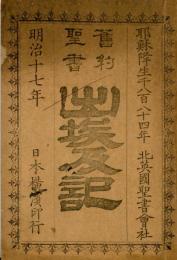 耶穌降生千八百八十四年
北英國聖書會社
舊約
聖書
出埃及記
明治十七年
日本橫濱印行